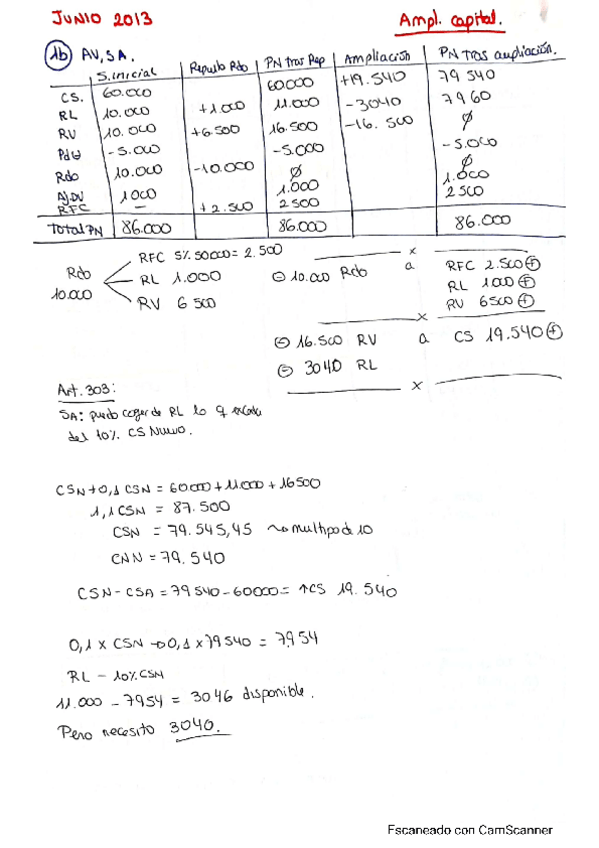 JUNIO 2013
Ampl. capital.
1b) AV, SA.
S. inicial | Reparto Rdo | PN tras Rep | Ampliación | PN Tras ampliación.
CS. 60.000 | | 60.000 | +19.540 | 79 540
RL 10.000 | +1.000 | 11.000 | -3040 | 7960
RV 10.000 | +6.500 | 16.500 | -16.500 | ∅
-5.000 | | -5.000 | | -5.000
Rdo 10.000 | -10.000 | ∅ | | ∅
1000 | | 1.000 | | 1.000
RFC - | +2.500 | 2500 | | 2500
Total PN 86.000 | | 86.000 | | 86.000
Rdo
10.000
RFC 5% 50000 = 2.500
RL 1.000
RV 6500
x
⊖ 10.000 Rdo a RFC 2.500 ⊕
RL 1000 ⊕
RV 6500 ⊕
x
⊖ 16.500 RV a CS 19.540 ⊕
⊖ 3040 RL
x
Art. 303:
SA: puedo coger de RL lo q exceda
del 10% CS Nuevo.
CSN + 0,1 CSN = 60000 + 11.000 + 16500
1,1 CSN = 87.500
CSN = 79.545,45 ~> multipo de 10
CNN = 79.540
CSN - CSA = 79540 - 60000 = ↑CS 19.540
0,1 x CSN → 0,1 x 79540 = 7954
RL - 10% CSN
11.000 - 7954 = 3046 disponible.
Pero necesito 3040.
Escaneado con CamScanner